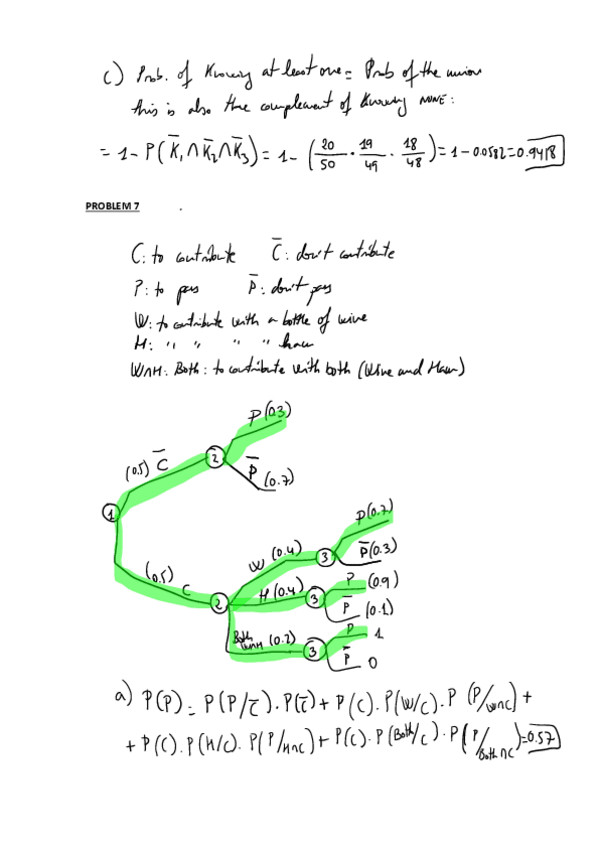 c) Prob. of Knowing at least one = Prob of the union
this is also the complement of Knowing NONE:
= 1 - P(K̄₁∩K̄₂∩K̄₃) = 1 - (20/50 · 19/49 · 18/48) = 1 - 0.0582 = 0.9418
PROBLEM 7
C: to contribute C̄: don't contribute
P: to pass P̄: don't pass
W: to contribute with a bottle of wine
H: " " " " ham
W∩H: Both: to contribute with both (Wine and Ham)
P(0.3)
(0.5) C̄
2
P̄ (0.7)
1
P(0.7)
W (0.4)
3
P̄(0.3)
(0.5) C
2
H (0.4)
3
P (0.9)
P̄ (0.1)
Both W∩H (0.2)
3
P 1
P̄ 0
a) P(P) = P(P/C̄).P(C̄) + P(C).P(W/C).P(P/W∩C) +
+ P(C).P(H/C).P(P/H∩C) + P(C).P(Both/C).P(P/Both∩C) = 0.57